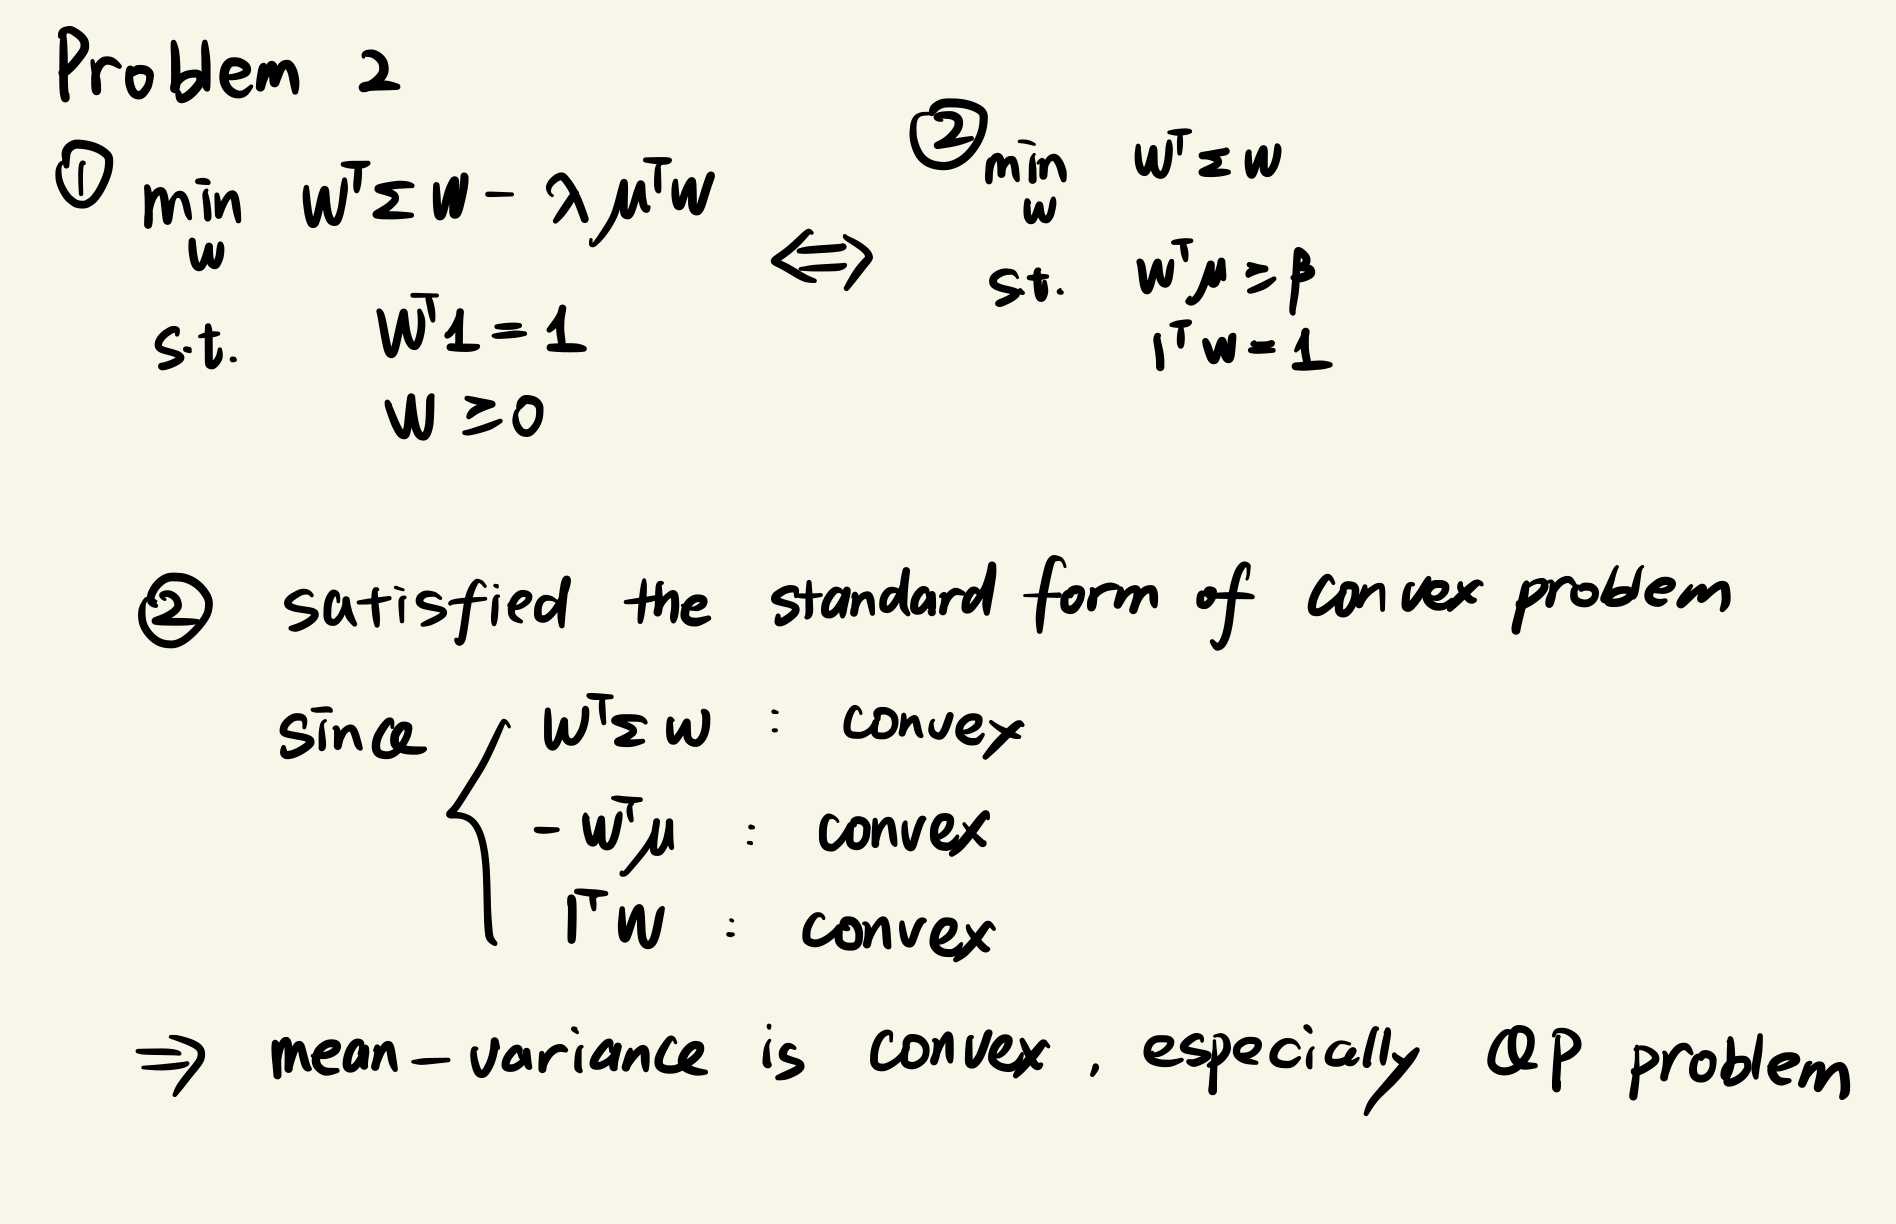 Problem 2
① min w wᵀΣw - λμᵀw
s.t. wᵀ1 = 1
w ≥ 0
⟺
② min w wᵀΣw
st. wᵀμ ≥ β
1ᵀw = 1
② satisfied the standard form of convex problem
since { wᵀΣw : convex
- wᵀμ : convex
1ᵀw : convex
⇒ mean-variance is convex, especially QP problem